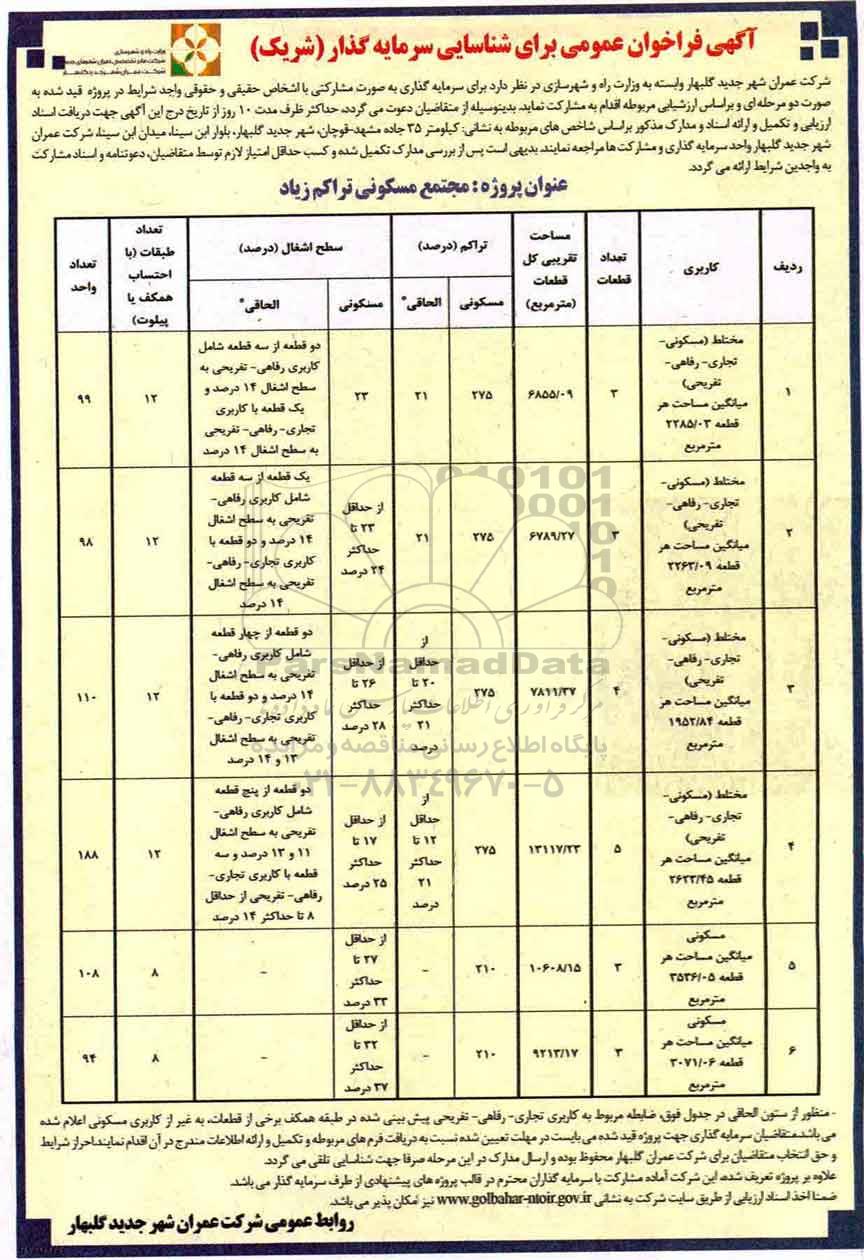 آگهی فراخوان عمومی برای شناسایی سرمایه گذار (شریک)
وزارت راه و شهرسازی
شرکت عمران شهر جدید گلبهار وابسته به وزارت راه و شهرسازی در نظر دارد برای سرمایه گذاری به صورت مشارکتی با اشخاص حقیقی و حقوقی واجد شرایط در پروژه قید شده به
صورت دو مرحله ای و براساس ارزشیابی مربوطه اقدام به مشارکت نماید. بدینوسیله از متقاضیان دعوت می گردد، حداکثر ظرف مدت ۱۰ روز از تاریخ درج این آگهی جهت دریافت اسناد
ارزیابی و تکمیل و ارائه اسناد و مدارک مذکور براساس شاخص های مربوطه به نشانی: کیلومتر ۳۵ جاده مشهد-قوچان، شهر جدید گلبهار، بلوار ابن سینا، میدان ابن سینا، شرکت عمران
شهر جدید گلبهار واحد سرمایه گذاری و مشارکت ها مراجعه نمایند. بدیهی است پس از بررسی مدارک تکمیل شده و کسب حداقل امتیاز لازم توسط متقاضیان، دعوتنامه و اسناد مشارکت
به واجدین شرایط ارائه می گردد.
عنوان پروژه : مجتمع مسکونی تراکم زیاد
ردیف
کاربری
تعداد
قطعات
مساحت
تقریبی کل
قطعات
(مترمربع)
تراکم (درصد)
مسکونی
الحاقی*
سطح اشغال (درصد)
مسکونی
الحاقی*
تعداد
طبقات (با
احتساب
همکف یا
پیلوت)
تعداد
واحد
۱
مختلط (مسکونی-
تجاری- رفاهی-
تفریحی)
میانگین مساحت هر
قطعه ۲۲۸۵/۰۳
مترمربع
۳
۶۸۵۵/۰۹
۲۷۵
۲۱
۲۳
دو قطعه از سه قطعه شامل
کاربری رفاهی- تفریحی به
سطح اشغال ۱۴ درصد و
یک قطعه با کاربری
تجاری- رفاهی- تفریحی
به سطح اشغال ۱۴ درصد
۱۲
۹۹
۲
مختلط (مسکونی-
تجاری- رفاهی-
تفریحی)
میانگین مساحت هر
قطعه ۲۲۶۳/۰۹
مترمربع
۳
۶۷۸۹/۲۷
۲۷۵
۲۱
از حداقل
۲۳ تا
حداکثر
۲۴ درصد
یک قطعه از سه قطعه
شامل کاربری رفاهی-
تفریحی به سطح اشغال
۱۴ درصد و دو قطعه با
کاربری تجاری- رفاهی-
تفریحی به سطح اشغال
۱۴ درصد
۱۲
۹۸
۳
مختلط (مسکونی-
تجاری- رفاهی-
تفریحی)
میانگین مساحت هر
قطعه ۱۹۵۲/۸۴
مترمربع
۴
۷۸۱۱/۳۷
۲۷۵
از
حداقل
۲۰ تا
حداکثر
۲۱
درصد
از حداقل
۲۶ تا
حداکثر
۲۸ درصد
دو قطعه از چهار قطعه
شامل کاربری رفاهی-
تفریحی به سطح اشغال
۱۴ درصد و دو قطعه با
کاربری تجاری- رفاهی-
تفریحی به سطح اشغال
۱۳ و ۱۴ درصد
۱۲
۱۱۰
۴
مختلط (مسکونی-
تجاری- رفاهی-
تفریحی)
میانگین مساحت هر
قطعه ۲۶۲۳/۴۵
مترمربع
۵
۱۳۱۱۷/۲۳
۲۷۵
از
حداقل
۱۲ تا
حداکثر
۲۱
درصد
از حداقل
۱۷ تا
حداکثر
۲۵ درصد
دو قطعه از پنج قطعه
شامل کاربری رفاهی-
تفریحی به سطح اشغال
۱۱ و ۱۳ درصد و سه
قطعه با کاربری تجاری-
رفاهی- تفریحی از حداقل
۸ تا حداکثر ۱۴ درصد
۱۲
۱۸۸
۵
مسکونی
میانگین مساحت هر
قطعه ۳۵۳۶/۰۵
مترمربع
۳
۱۰۶۰۸/۱۵
۲۱۰
-
از حداقل
۲۷ تا
حداکثر
۳۳ درصد
-
۸
۱۰۸
۶
مسکونی
میانگین مساحت هر
قطعه ۳۰۷۱/۰۶
مترمربع
۳
۹۲۱۳/۱۷
۲۱۰
-
از حداقل
۳۲ تا
حداکثر
۳۷ درصد
-
۸
۹۴
ParsNamadData
پایگاه اطلاع رسانی مناقصه و مزایده
۰۲۱-۸۸۳۴۹۶۷۰-۵
- منظور از ستون الحاقی در جدول فوق، ضابطه مربوط به کاربری تجاری- رفاهی- تفریحی پیش بینی شده در طبقه همکف برخی از قطعات، به غیر از کاربری مسکونی اعلام شده
می باشد.متقاضیان سرمایه گذاری جهت پروژه قید شده می بایست در مهلت تعیین شده نسبت به دریافت فرم های مربوطه و تکمیل و ارائه اطلاعات مندرج در آن اقدام نمایند.احراز شرایط
و حق انتخاب متقاضیان برای شرکت عمران گلبهار محفوظ بوده و ارسال مدارک در این مرحله صرفا جهت شناسایی تلقی می گردد.
علاوه بر پروژه تعریف شده، این شرکت آماده مشارکت با سرمایه گذاران محترم در قالب پروژه های پیشنهادی از طرف سرمایه گذار می باشد.
ضمنا اخذ اسناد ارزیابی از طریق سایت شرکت به نشانی www.golbahar-ntoir.gov.ir نیز امکان پذیر می باشد.
روابط عمومی شرکت عمران شهر جدید گلبهار